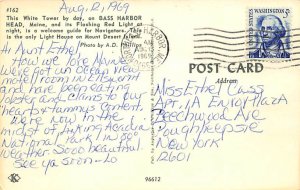 Aug. 12, 1969
#162
This White Tower by day, on BASS HARBOR
HEAD, Maine, and its Flashing Red Light at
night, is a welcome guide for Navigators. This
is the only Light House on Mount Desert Island.
Photo by A.D. Phillips
Hi Aunt Ethel,
How we love Maine
We've got an ocean view
motel from
and have been eating
lobster and clams to our
hearts + tummys content.
We're now in the
midst of hiking Acadia
National Park in 50°
weather sooo beautiful.
See ya soon - Lo
BASS HARBOR, ME.
AM
1969
WASHINGTON
5¢
U.S. POSTAGE
POST CARD
Address
Miss Ethel Cass
Apt. 1A Enlo Plaza
Beechwood Ave
Poughkeepsie
New York
12601
K
96612